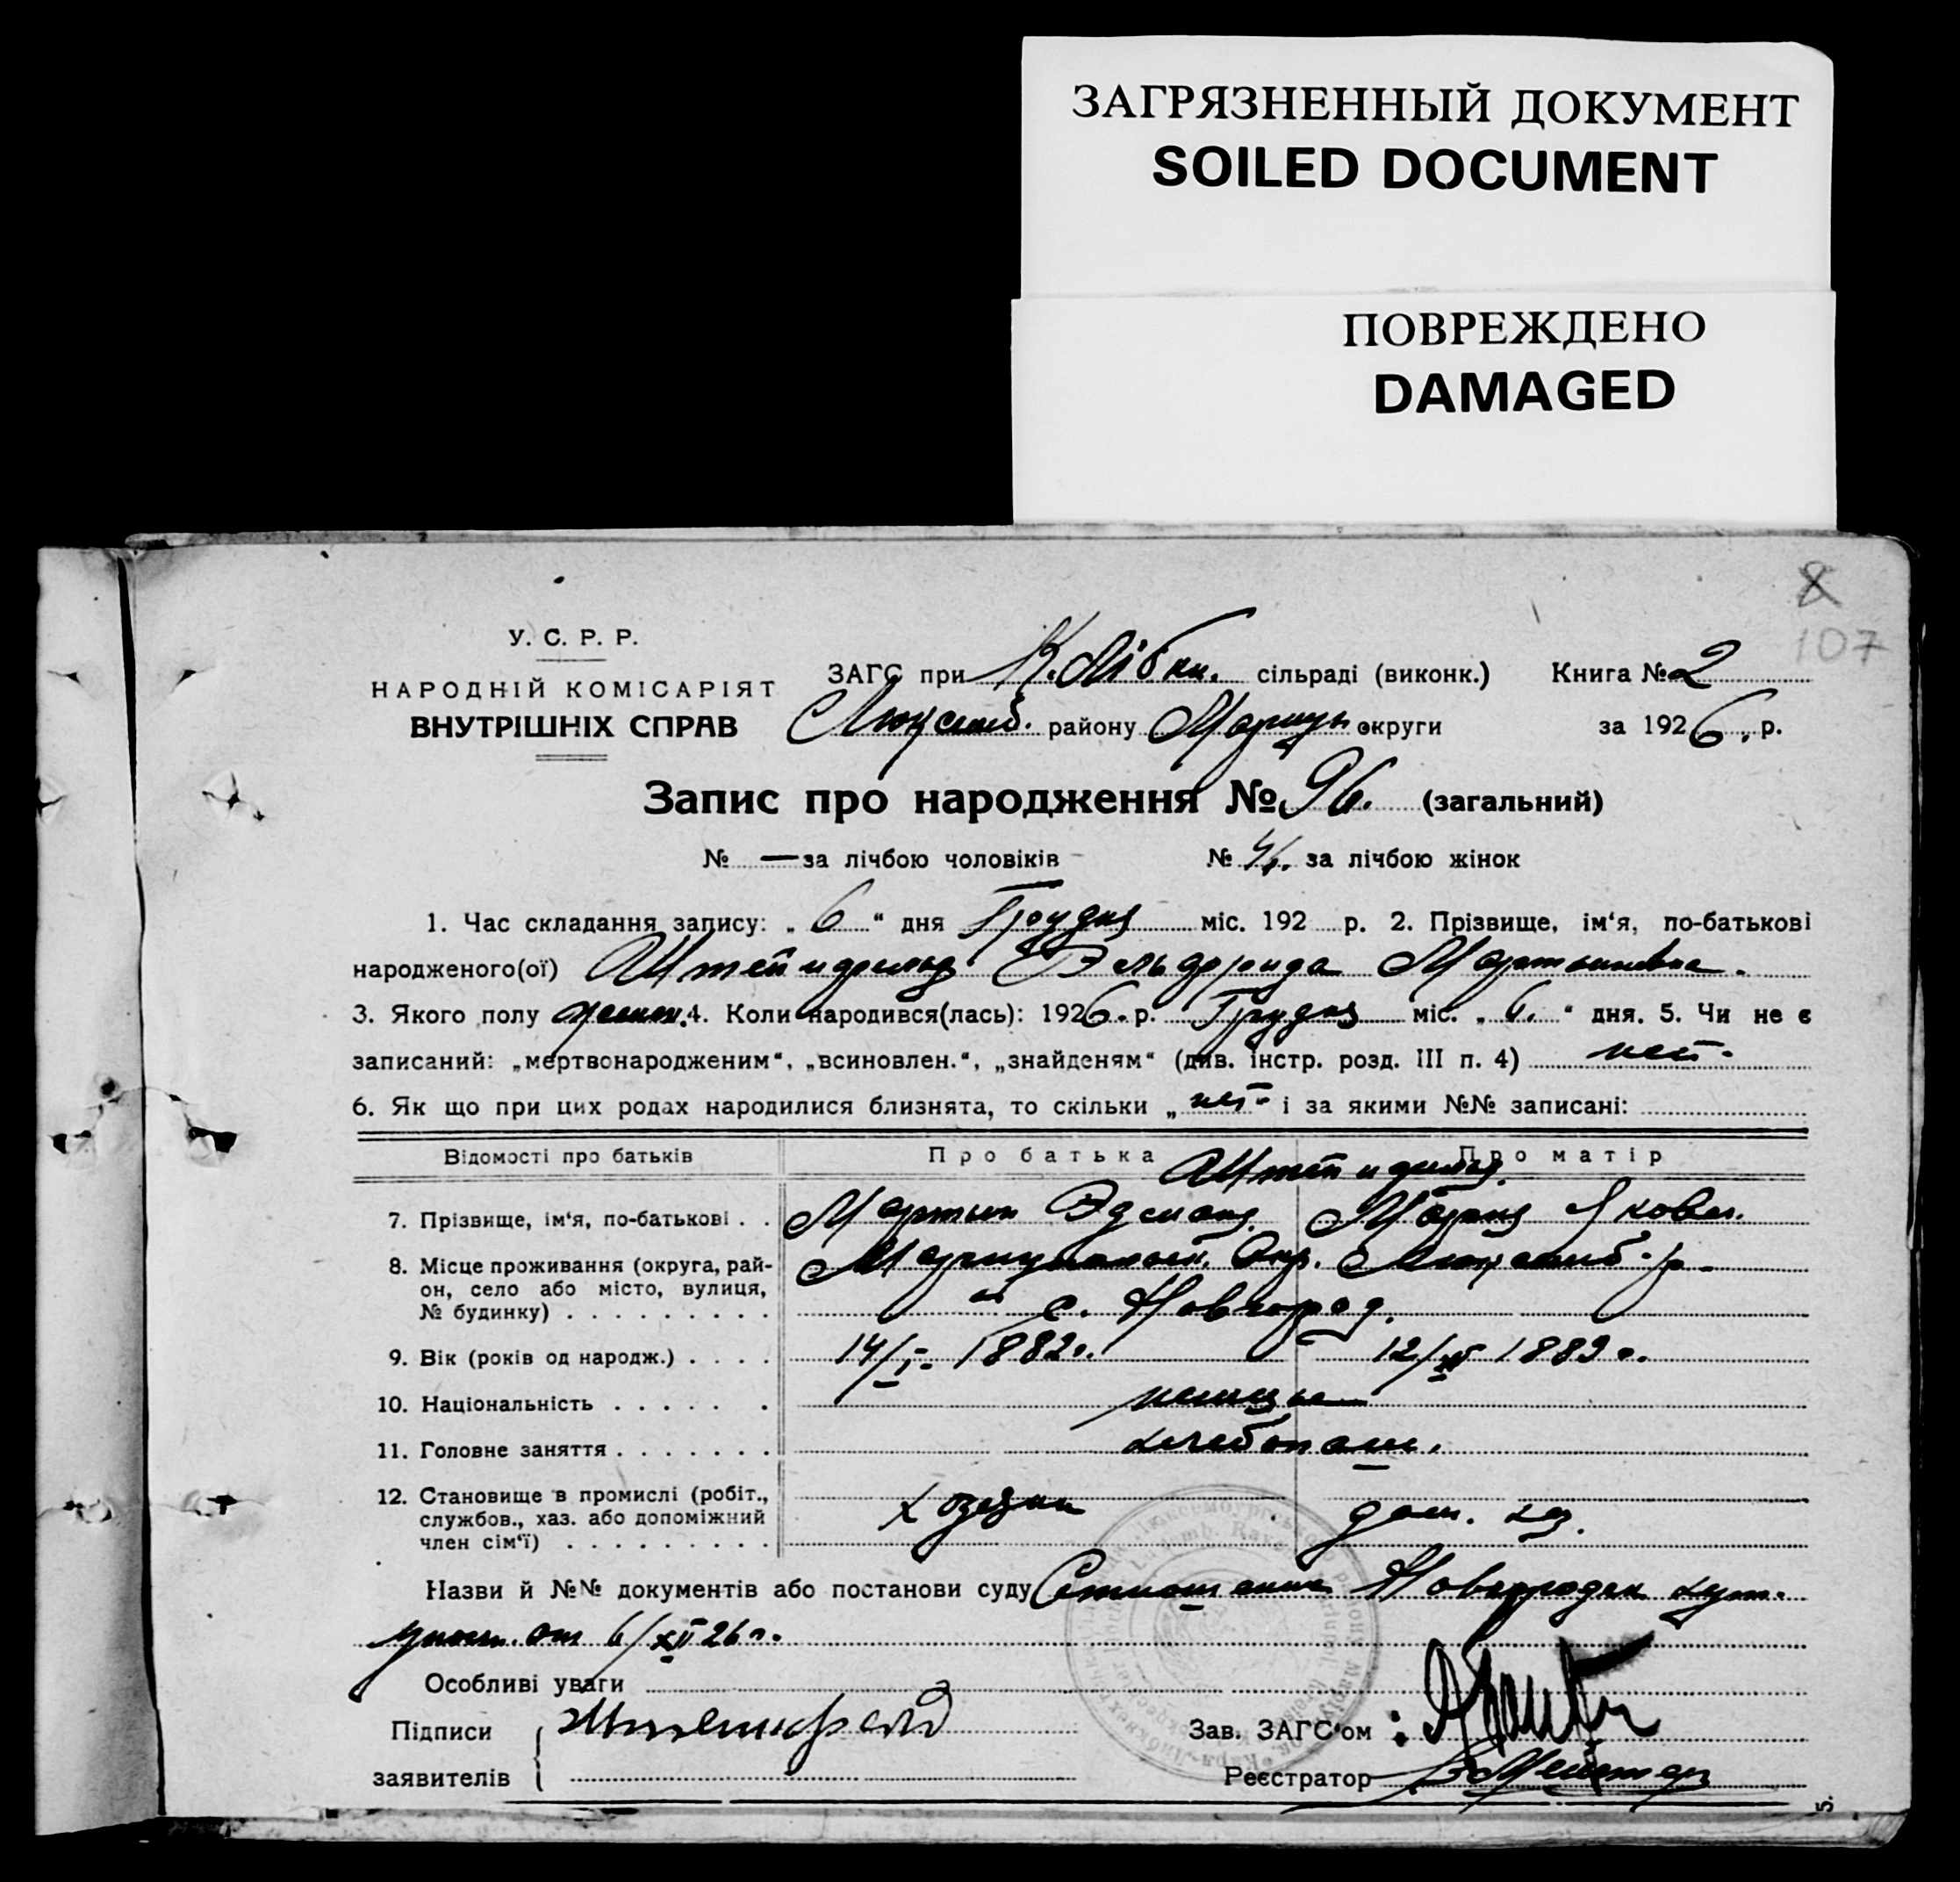 ЗАГРЯЗНЕННЫЙ ДОКУМЕНТ
SOILED DOCUMENT
ПОВРЕЖДЕНО
DAMAGED
8
107
У. С. Р. Р.
НАРОДНІЙ КОМІСАРІЯТ
ВНУТРІШНІХ СПРАВ
ЗАГС при К. Лібкн. сільраді (виконк.) Книга № 2
Люксемб. району Маріуп. округи за 1926. р.
Запис про народження № 96. (загальний)
№ — за лічбою чоловіків № за лічбою жінок
1. Час складання запису: „ 6 “ дня Грудня міс. 192 р. 2. Прізвище, ім‘я, по-батькові
народженого(ої) Эльфрида Мартыновна.
3. Якого полу женск. 4. Коли народився(лась): 1926. р. Грудня міс. „ 6. “ дня. 5. Чи не є
записаний: „мертвонародженим“, „всиновлен.“, „знайденям“ (див. інстр. розд. III п. 4) нет.
6. Як що при цих родах народилися близнята, то скільки „ нет “ і за якими №№ записані:
Відомості про батьків Про батька Про матір
7. Прізвище, ім‘я, по-батькові . . Мартын Эдмонд. Яковл.
8. Місце проживання (округа, рай-
он, село або місто, вулиця,
№ будинку) . . . . . . . . . Мариупольск. Окр. Люксемб. р.
с. Новгород.
9. Вік (років од народж.) . . . . 14/I. 1882г. 12/ 1883 г.
10. Національність . . . . . . немцы
11. Головне заняття . . . . . . . хлебопаш.
12. Становище в промислі (робіт.,
службов., хаз. або допоміжний
член сім‘ї) . . . . . . . . . хозяин дом. хоз.
Назви й №№ документів або постанови суду Новгородск. хут.
от 6/XII 26 г.
Особливі уваги
Підписи
заявителів
Зав. ЗАГС‘ом :
Реєстратор
5.